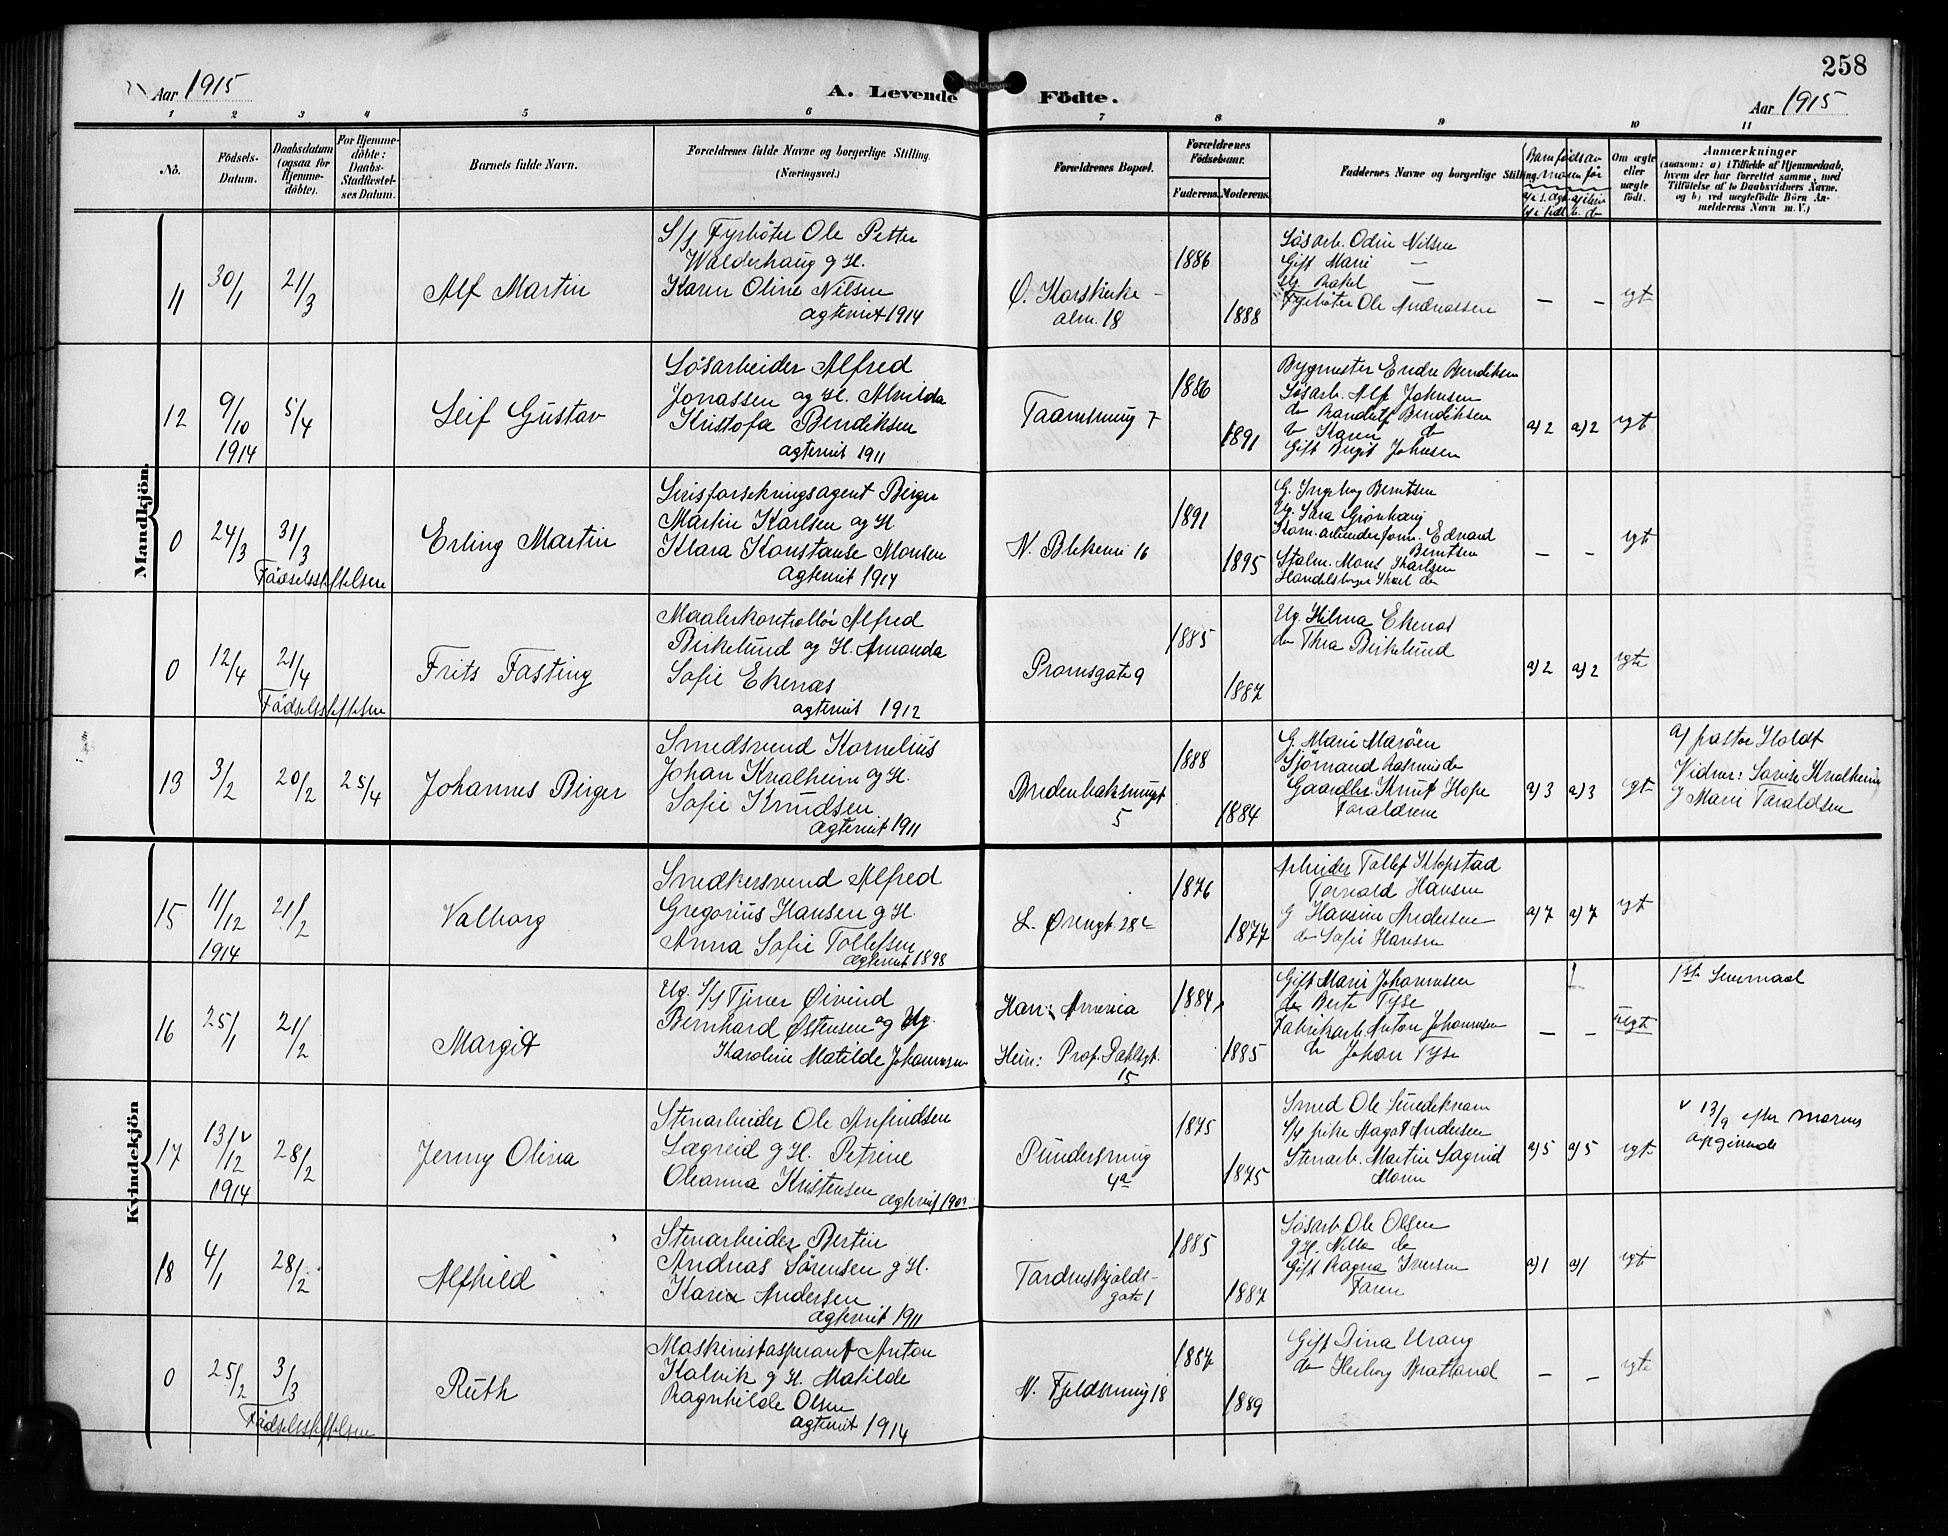 258
Aar 1915
A. Levende Födte.
Aar 1915
1 2 3 4 5 6 7 8 9 10 11
No.
Födsels-
Datum.
Daabsdatum
(ogsaa for
Hjemme-
döbte).
For Hjemme-
döbte:
Daabs-
Stadfæstel-
ses Datum.
Barnets fulde Navn.
Forældrenes fulde Navne og borgerlige Stilling.
(Næringsvei.)
Forældrenes Bopæl.
Forældrenes
Födselsaar.
Faderens. Moderens.
Faddernes Navne og borgerlige Stilling.
Om ægte
eller
uægte
født.
Anmærkninger
(saasom: a) i Tilfælde af Hjemmedaab,
hvem der har forrettet samme, med
Tilföielse af to Daabsvidners Navne,
og b) ved uægtefödte Börn An-
melderens Navn m. V.)
Mandkjön.
11
30/1
21/3
Alf Martin
S/f Fyrbøter Ole Petter
Walderhaug g H.
Karen Oline Nilsen
ægteviet 1914
Ø. Korskirke-
alm. 18
1886
1888
Søsarb. Odin Nilsen
Gift Marie —
Ug. Rakel —
Fyrbøter Ole Andreassen
— —
egt
12
9/10
1914
5/4
Leif Gustav
Søsarbeider Alfred
Jonassen og H. Alvilda
Kristofa Bendiksen
ægteviet 1911
Taarnsmug 7
1886
1891
Bygmester Endre Bendiksen
Søsarb. Alf Johnsen
do Randulf Bendiksen
do Karen do
Gift Birgit Johnsen
a) 2 a) 2
egt
0
24/3
31/3
Fødselsstiftelsen
Erling Martin
Livsforsikringsagent Birger
Martin Karlsen og H
Klara Konstanse Monsen
ægteviet 1914
N. Blekevei 16
1891
1895
G. Ingeborg Berntsen
Ug. Sara Grønhaug
Kom. arbeiderform. Edvard
Berntsen
Stalm. Mons Karlsen
Handelsborger Karl do
— —
egt
0
12/4
21/4
Fødselsstiftelsen
Frits Fasting
Maalerkontrollør Alfred
Birkelund og H. Amanda
Sofie Ekenæs
ægteviet 1912
Promsgate 9
1885
1887
Ug. Hilma Ekenæs
do Thea Birkelund
a) 2 a) 2
egte
13
3/2
20/2
25/4
Johannes Birger
Smedsvend Kornelius
Johan Kvalheim og H.
Sofie Knudsen
ægteviet 1911
Bredenbaksmugt
5
1888
1884
G. Marie Marøen
Sjømand Rasmus do
Gaardbr Knut Hope
Forældrene
a) 3 a) 3
egt
a/ pastor Holdt
Vidner: Lovise Kvalheim
g Marie Taraldsen
Kvindekjön
15
11/12
1914
21/2
Valborg
Smedkersvend Alfred
Gregorius Hansen g H.
Anna Sofie Tollefsen
ægteviet 1898
L. Øvregt. 28c
1876
1877
Arbeider Tollef Klopstad
Torvald Hansen
G Hansine Andersen
do Sofie Hansen
a) 7 a) 7
egt
16
25/1
21/2
Margit
Ug. S/f Tjener Øivind
Bernhard Østensen og Ug.
Karoline Matilde Johannesen
Han: Amerika
Hun: Prof. Dahlsgt.
15
1884
1885
Gift Marie Johannesen
do Berte Tyse
Fabrikarb. Anton Johannesen
do Johan Tyse
— —
uegt
1ste Leiermaal
17
13/12
1914
28/2
Jenny Olina
Stenarbeider Ole Anfindsen
Lægreid g H. Petrine
Oleanna Kristensen
Pundersmug
4a
1875
1875
Smed Ole Smedeknam
S/f frike Magot Andersen
Stenarb. Martin Lægreid
Moren
a) 5 a) 5
egt
v 13/9 efter morens
opgivende
18
4/1
28/2
Alfhild
Stenarbeider Bertin
Andreas Sørensen g H.
Karen Andersen
ægteviet 1911
Tordenskjolds-
gate 1
1885
1887
Søsarb. Ole Olsen
g H. Nilla do
Gift Ragna Iversen
Faren
a) 1 a) 1
egt
0
25/2
3/3
Fødselsstiftelsen
Ruth
Maskinistaspirant Anton
Kalvik g H. Matilde
Ragnhilde Olsen
ægteviet 1914
N. Fjeldsmug 18
1887
1889
Gift Dina Urang
do Herborg Bratland
— —
egte